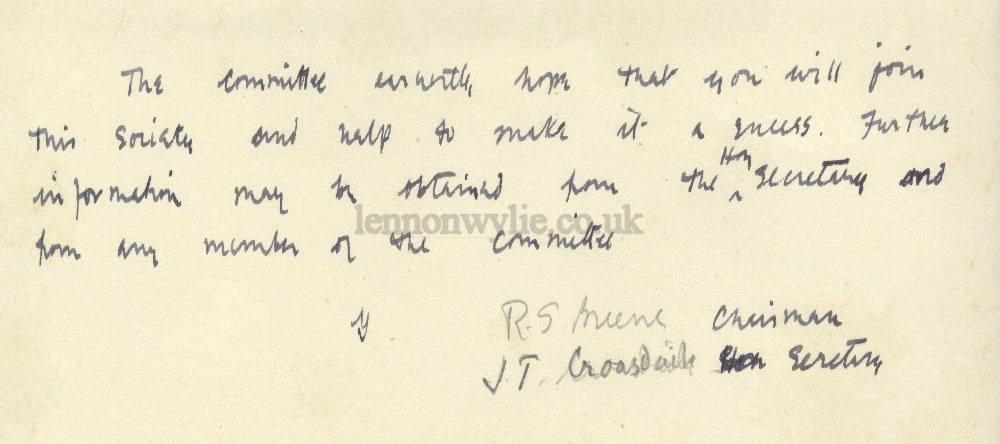 The Committee earnestly hope that you will join
this Society and help to make it a success. Further
information may be obtained from the ^Hon Secretary and
lennonwylie.co.uk
from any member of the Committee
R.S Greene Chairman
J.T. Croasdaile Hon Secretary